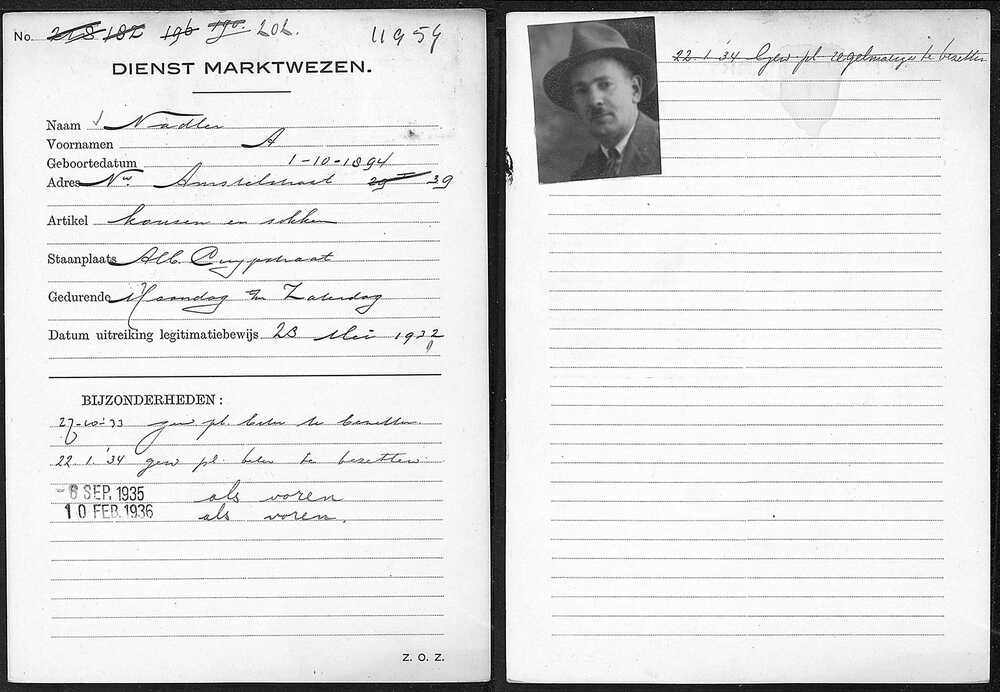 No. 218 182 196 190. 202. 11954
DIENST MARKTWEZEN.
Naam Nadler
Voornamen A
Geboortedatum 1-10-1894
Adres Nw. Amstelstraat 29 I 39
Artikel kousen en sokken
Staanplaats Alb. Cuypstraat
Gedurende Maandag Zaterdag
Datum uitreiking legitimatiebewijs 23 Mei 1932
BIJZONDERHEDEN:
27-10-33 gew pl. beter te bezetten.
22.1.'34 gew pl. beter te bezetten.
-6 SEP. 1935 als voren
10 FEB. 1936 als voren.
Z. O. Z.
22.1.'34 Gew pl regelmatiger te bezetten